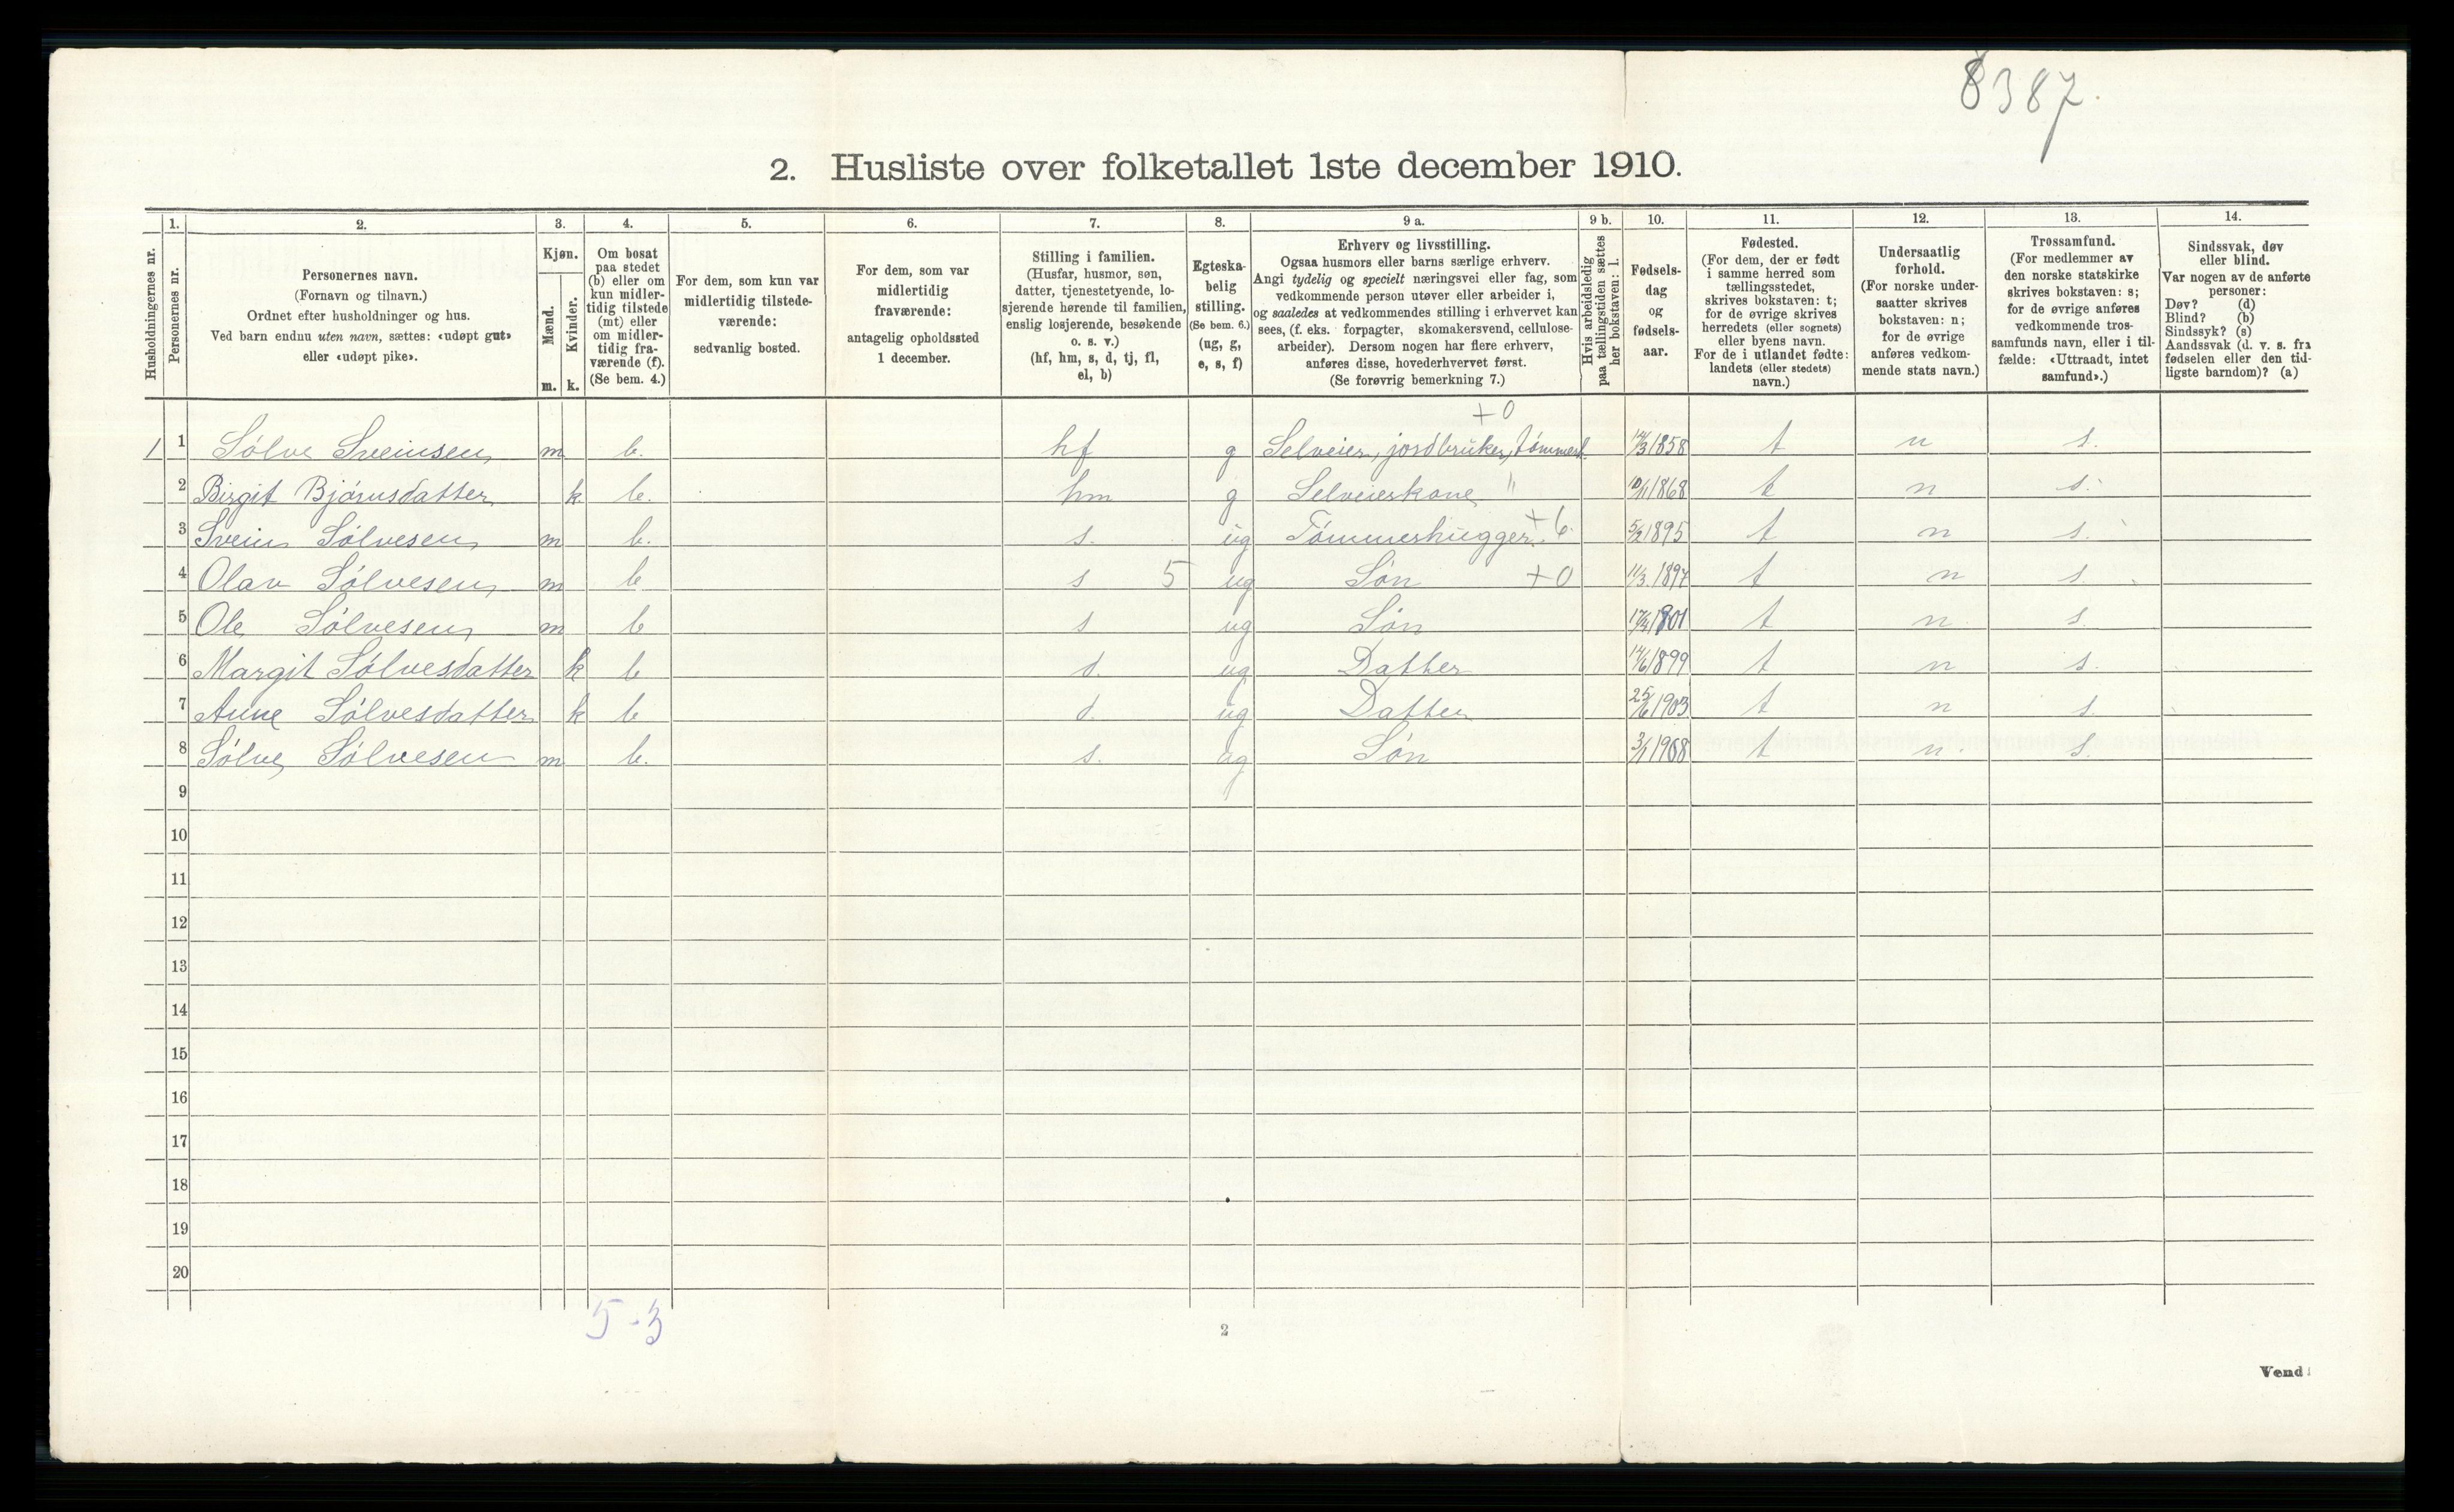 8387.
2. Husliste over folketallet 1ste december 1910.
Husholdningernes nr.
1.
Personernes nr.
2.
Personernes navn.
(Fornavn og tilnavn.)
Ordnet efter husholdninger og hus.
Ved barn endnu uten navn, sættes: «udøpt gut»
eller «udøpt pike».
3.
Kjøn.
Mænd.
Kvinder.
m. k.
4.
Om bosat
paa stedet
(b) eller om
kun midler-
tidig tilstede
(mt) eller
om midler-
tidig fra-
værende (f).
(Se bem. 4.)
5.
For dem, som kun var
midlertidig tilstede-
værende:
sedvanlig bosted.
6.
For dem, som var
midlertidig
fraværende:
antagelig opholdssted
1 december.
7.
Stilling i familien.
(Husfar, husmor, søn,
datter, tjenestetyende, lo-
sjerende hørende til familien,
enslig losjerende, besøkende
o. s. v.)
(hf, hm, s, d, tj, fl,
el, b)
8.
Egteska-
belig
stilling.
(Se bem. 6.)
(ug, g,
e, s, f)
9 a.
Erhverv og livsstilling.
Ogsaa husmors eller barns særlige erhverv.
Angi tydelig og specielt næringsvei eller fag, som
vedkommende person utøver eller arbeider i,
og saaledes at vedkommendes stilling i erhvervet kan
sees, (f. eks. forpagter, skomakersvend, cellulose-
arbeider). Dersom nogen har flere erhverv,
anføres disse, hovederhvervet først.
(Se forøvrig bemerkning 7.)
9 b.
Hvis arbeidsledig
paa tællingstiden sættes
her bokstaven: l.
10.
Fødsels-
dag
og
fødsels-
aar.
11.
Fødested.
(For dem, der er født
i samme herred som
tællingsstedet,
skrives bokstaven: t;
for de øvrige skrives
herredets (eller sognets)
eller byens navn.
For de i utlandet fødte:
landets (eller stedets)
navn.)
12.
Undersaatlig
forhold.
(For norske under-
saatter skrives
bokstaven: n;
for de øvrige
anføres vedkom-
mende stats navn.)
13.
Trossamfund.
(For medlemmer av
den norske statskirke
skrives bokstaven: s;
for de øvrige anføres
vedkommende tros-
samfunds navn, eller i til-
fælde: «Uttraadt, intet
samfund».)
14.
Sindssvak, døv
eller blind.
Var nogen av de anførte
personer:
Døv? (d)
Blind? (b)
Sindssyk? (s)
Aandssvak (d. v. s. fra
fødselen eller den tid-
ligste barndom)? (a)
+0
1 1 Sølve Sveinsen m b. hf g Selveier, jordbruker, tømmerh. 14/3 1858 t n s.
2 Birgit Bjørnsdatter k b. hm g Selveierkone " 10/1 1868 t n s.
3 Svein Sølvesen m b. s. ug Tømmerhugger. +6. 5/2 1895 t n s.
4 Olav Sølvesen m b s 5 ug Søn +0 11/3. 1897 t n s
5 Ole Sølvesen m b s ug Søn 17/4 1901 t n s.
6 Margit Sølvesdatter k b d. ug Datter 14/6 1899 t n s.
7 Anne Sølvesdatter k b d. ug Datter 25/6 1903 t n s.
8 Sølve Sølvesen m b. s. ug Søn 3/1 1908 t n. s.
9
10
11
12
13
14
15
16
17
18
19
20
5-3
2
Vend